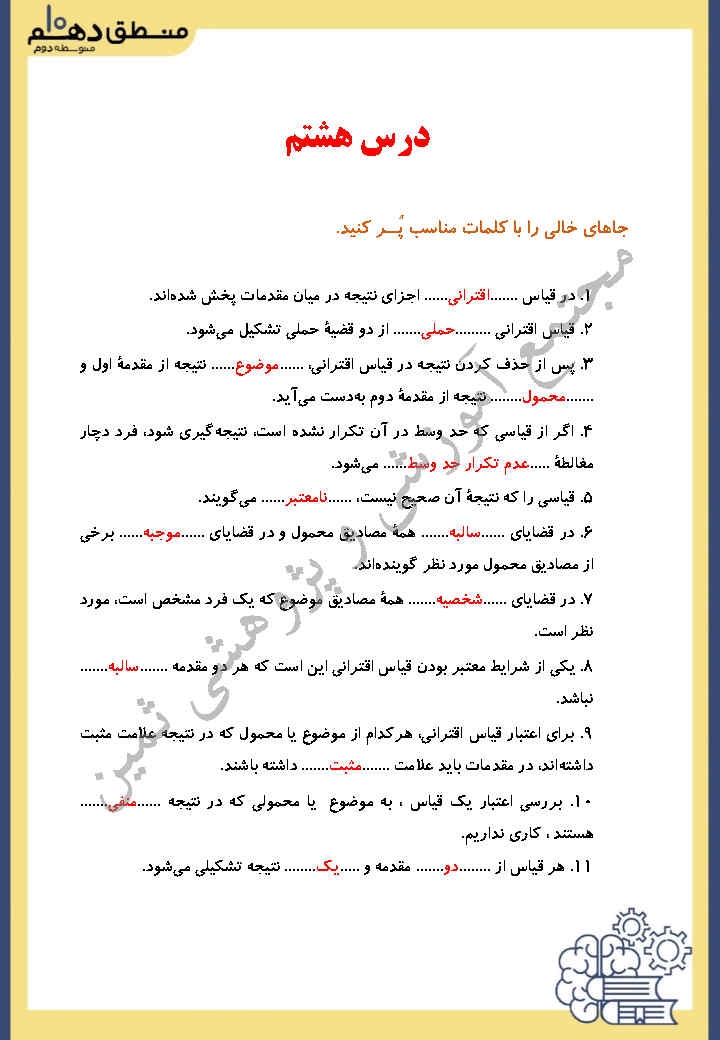 منطق دهم ۱۰
متوسطه دوم
درس هشتم
جاهای خالی را با کلمات مناسب پُــر کنید.
۱. در قیاس .......اقترانی...... اجزای نتیجه در میان مقدمات پخش شده‌اند.
۲. قیاس اقترانی .........حملی....... از دو قضیۀ حملی تشکیل می‌شود.
۳. پس از حذف کردن نتیجه در قیاس اقترانی، ......موضوع...... نتیجه از مقدمۀ اول و
.......محمول........ نتیجه از مقدمۀ دوم به‌دست می‌آید.
۴. اگر از قیاسی که حد وسط در آن تکرار نشده است، نتیجه‌گیری شود، فرد دچار
مغالطۀ .....عدم تکرار حد وسط...... می‌شود.
۵. قیاسی را که نتیجۀ آن صحیح نیست، ......نامعتبر...... می‌گویند.
۶. در قضایای ......سالبه....... همۀ مصادیق محمول و در قضایای ......موجبه...... برخی
از مصادیق محمول مورد نظر گوینده‌اند.
۷. در قضایای ......شخصیه....... همۀ مصادیق موضوع که یک فرد مشخص است، مورد
نظر است.
۸. یکی از شرایط معتبر بودن قیاس اقترانی این است که هر دو مقدمه .......سالبه.......
نباشد.
۹. برای اعتبار قیاس اقترانی، هرکدام از موضوع یا محمول که در نتیجه علامت مثبت
داشته‌اند، در مقدمات باید علامت .......مثبت....... داشته باشند.
۱۰. بررسی اعتبار یک قیاس ، به موضوع یا محمولی که در نتیجه ......منفی.......
هستند ، کاری نداریم.
۱۱. هر قیاس از ........دو....... مقدمه و .....یک........ نتیجه تشکیلی می‌شود.
مجتمع آموزشی و پژوهشی ثمین